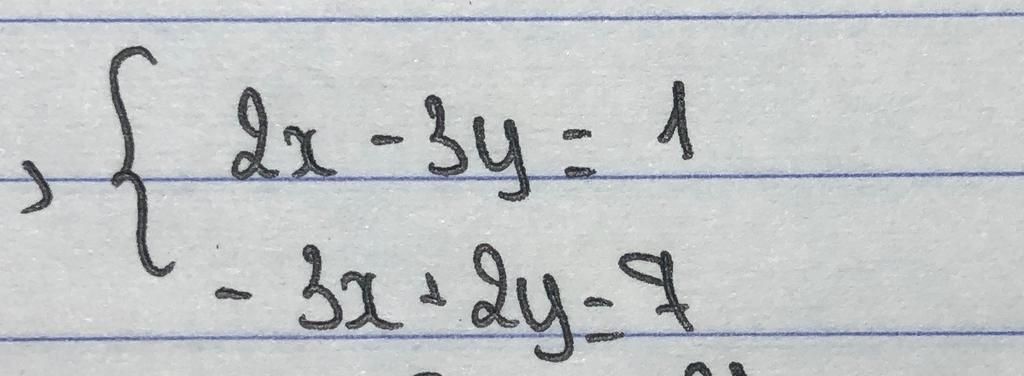 , { 2x - 3y = 1
- 3x + 2y = 7